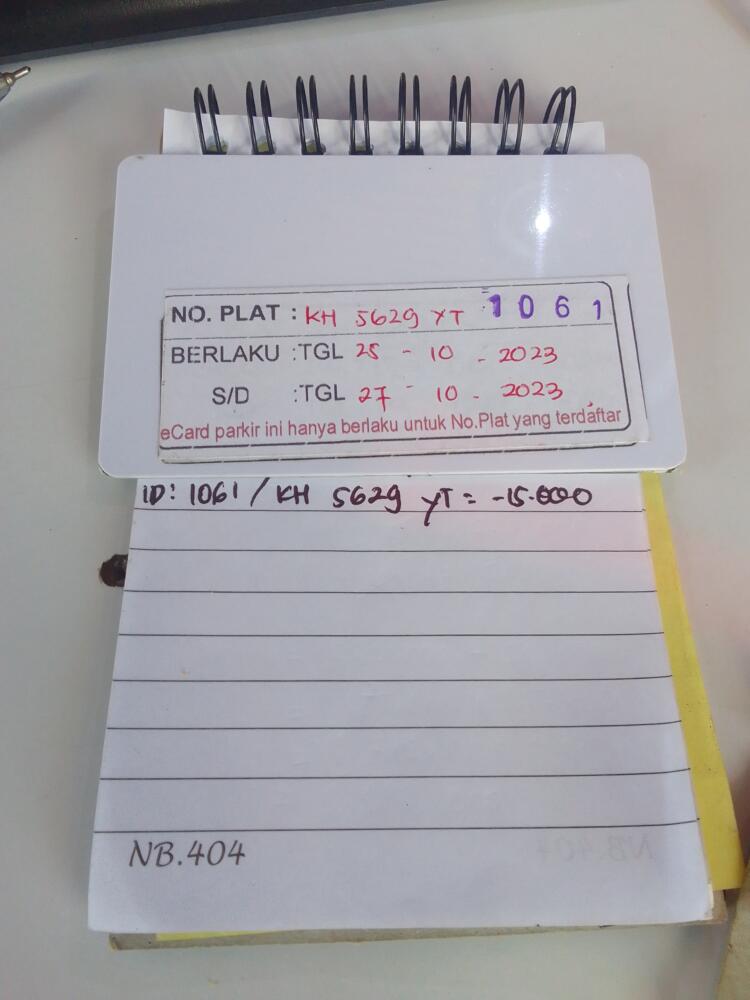 NO. PLAT : KH 5629 YT 1061
BERLAKU :TGL 25 - 10 - 2023
S/D :TGL 27 - 10 - 2023
eCard parkir ini hanya berlaku untuk No.Plat yang terdaftar
ID: 1061 / KH 5629 YT = -15.000
NB.404